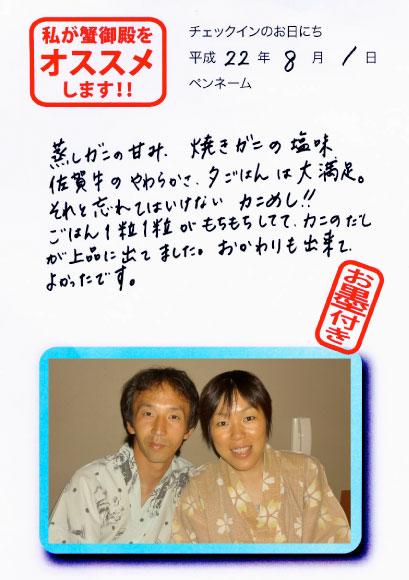 私が蟹御殿を
オススメ
します!!
チェックインのお日にち
平成 22 年 8 月 1 日
ペンネーム
蒸しガニの甘み、焼きガニの塩味
佐賀牛のやわらかさ、夕ごはんは大満足。
それと忘れてはいけない カニめし!!
ごはん1粒1粒がもちもちしてて、カニのだし
が上品に出てました。おかわりも出来て、
よかったです。
お墨付き